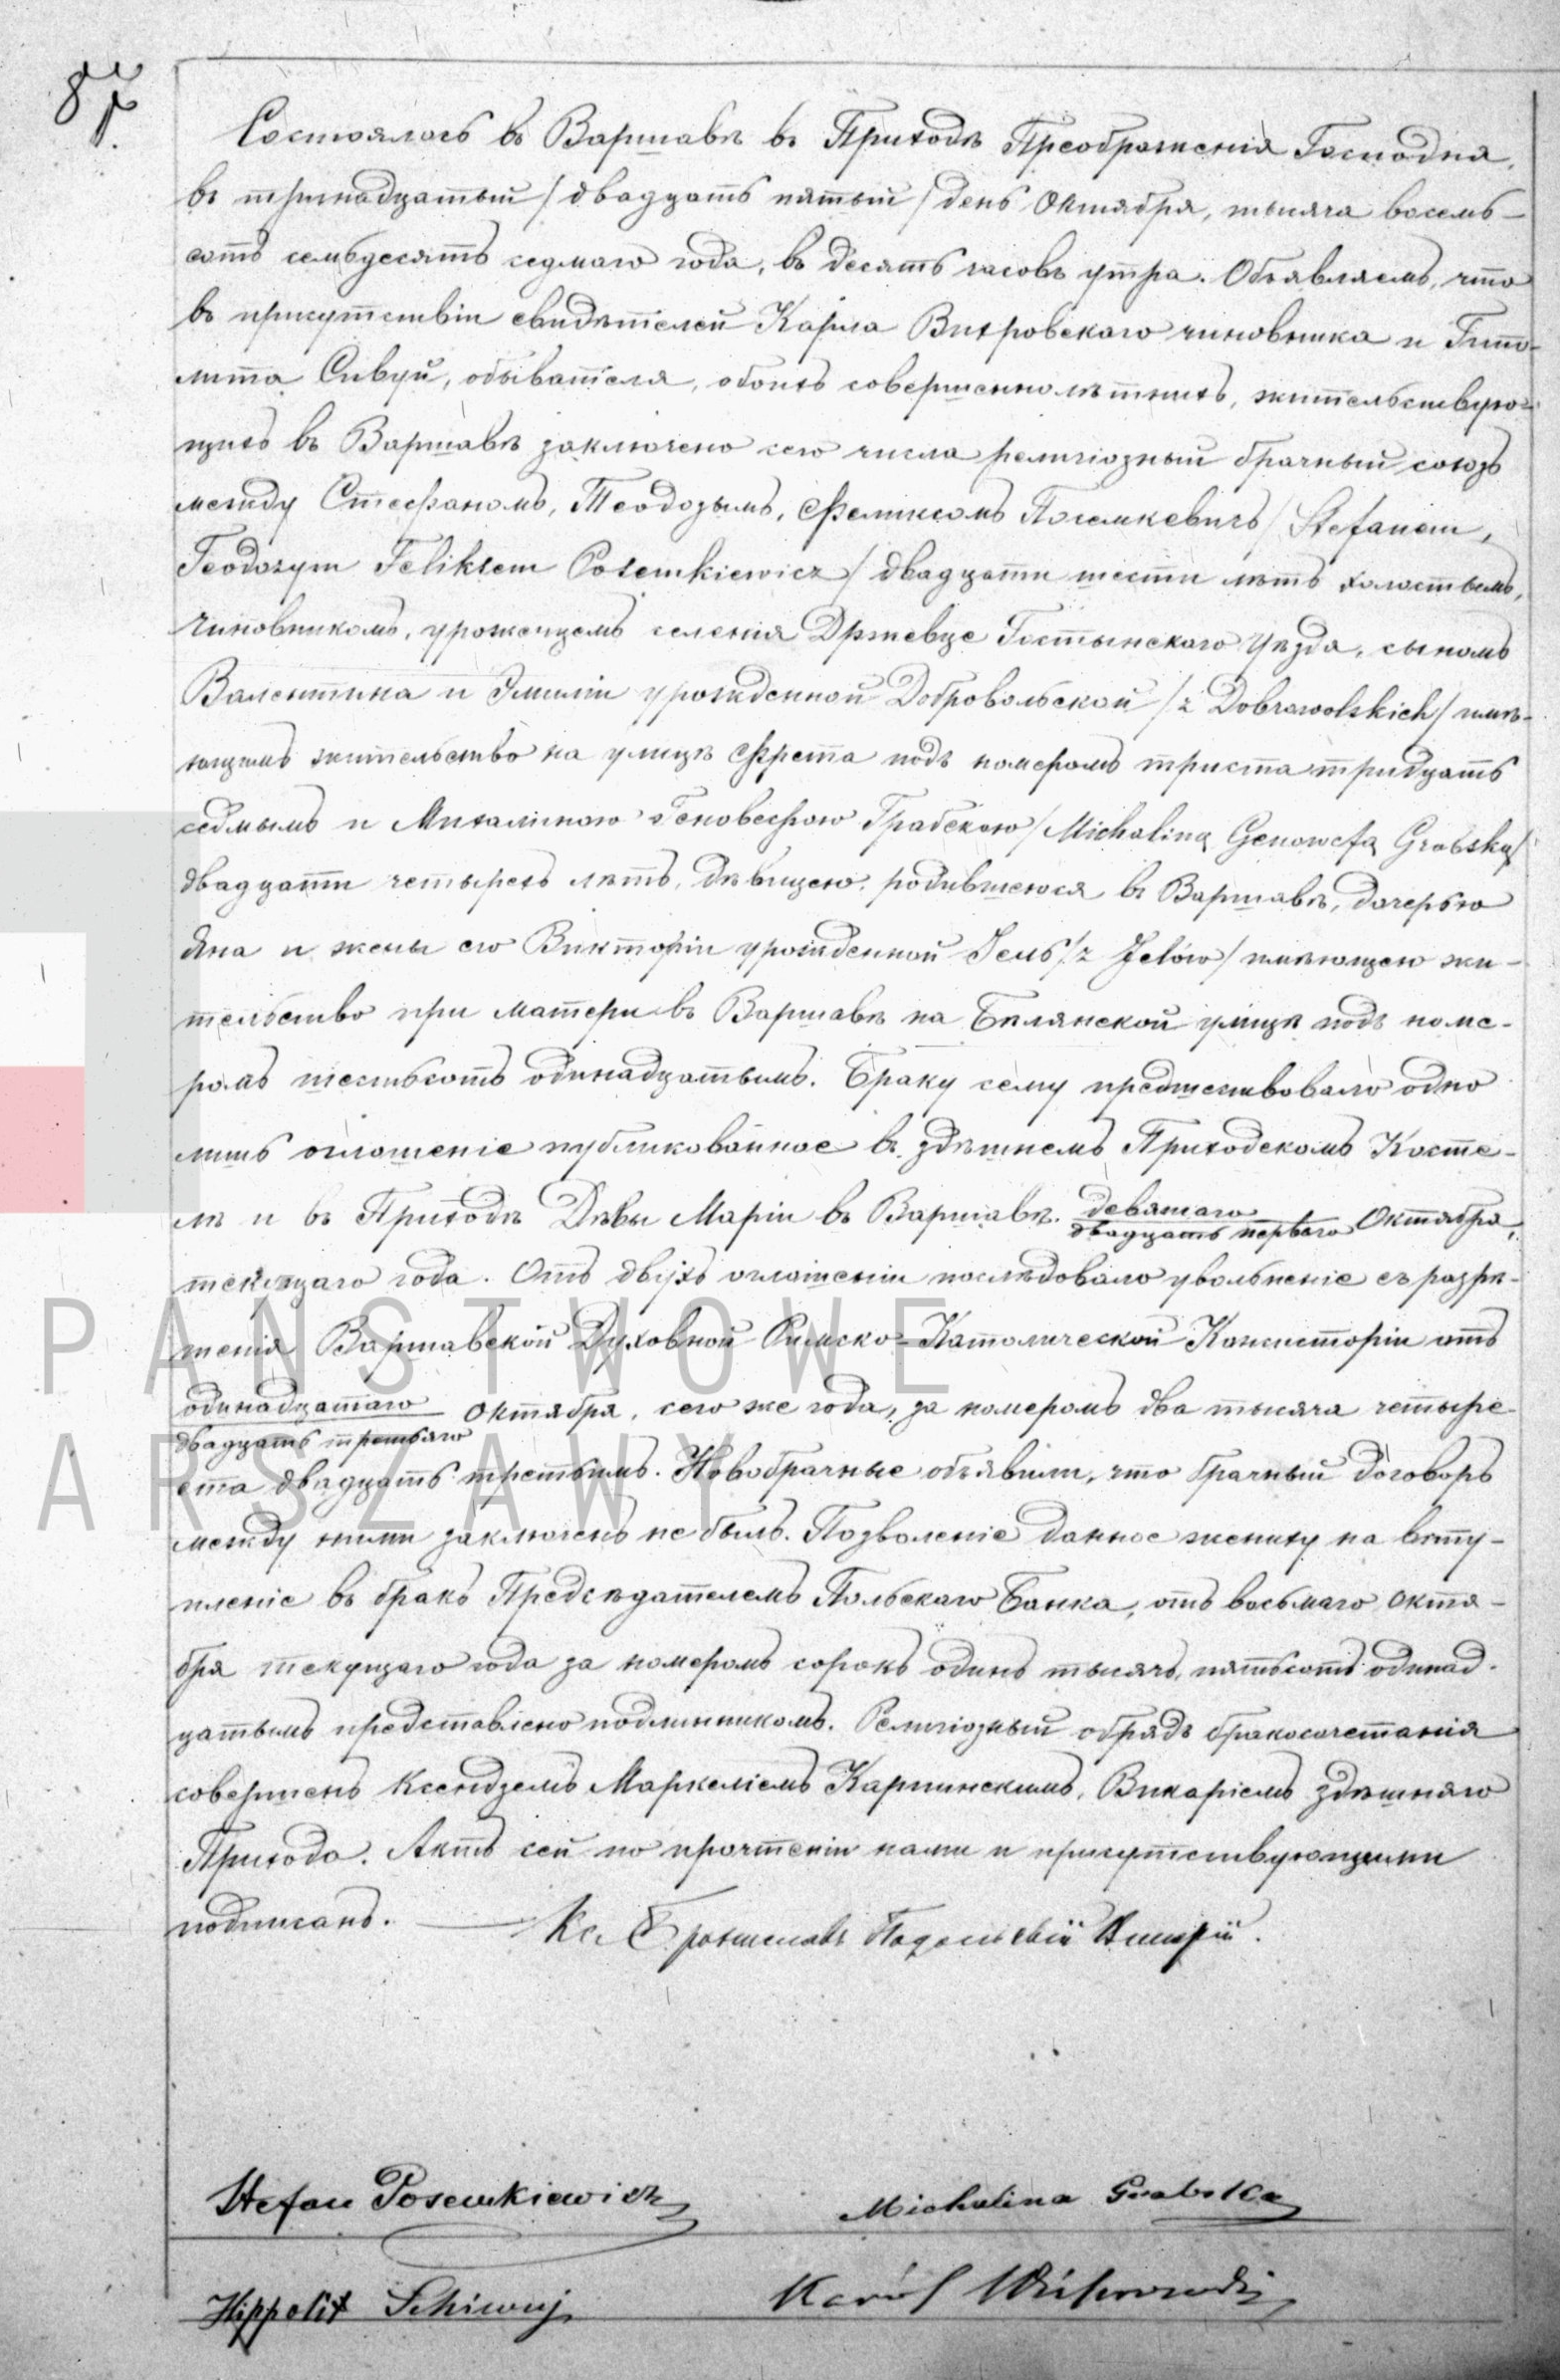 87.
Состоялось въ Варшавѣ въ Приходѣ Преображенія Господня,
въ тринадцатый /двадцать пятый/ день Октября, тысяча восемь-
сотъ семьдесятъ седмаго года, въ десять часовъ утра. Объявляемъ, что
въ присутствіи свидѣтелей Карла Вихровскаго чиновника и Гиппо-
лита Сивуй, обывателя, обоихъ совершеннолѣтнихъ, жительствую-
щихъ въ Варшавѣ заключено сего числа религіозный брачный союзъ
между Стефаномъ, Теодозымъ, Феликсомъ Посемкевичъ /Stefanem,
Teodozym Feliksem Posemkiewicz/ двадцати шести лѣтъ холостымъ,
чиновникомъ, урожецемъ селенія Држевце Гостынскаго Уѣзда, сыномъ
Валентина и Эмиліи урожденной Добровольской /z Dobrowolskich/ имѣ-
ющимъ жительство на улицѣ Фрета подъ номеромъ триста тридцать
седмымъ и Михалиною Геновефою Грабскою /Michaliną Genowefą Grabską/
двадцати четырехъ лѣтъ, дѣвицею, родившеюся въ Варшавѣ, дочерью
Яна и жены его Викторіи урожденной Іель /z Jelów/ имѣющею жи-
тельство при матери въ Варшавѣ на Бѣлянской улицѣ подъ номе-
ромъ шестьсотъ одинадцатымъ. Браку сему предшествовало одно
лишь оглошеніе публикованное въ здѣшнемъ Приходскомъ Косте-
лѣ и въ Приходѣ Дѣвы Маріи въ Варшавѣ. девятаго
двадцать перваго Октября,
текущаго года. Отъ двухъ оглошеніи послѣдовало увольненіе съ разрѣ-
шенія Варшавской Духовной Римско-Католической Консисторіи отъ
одинадцатаго
двадцать третьяго Октября, сего же года, за номеромъ два тысяча четыре-
ста двадцать третьимъ. Новобрачные объявили, что брачный договоръ
между ними заключенъ не былъ. Позволеніе данное жениху на всту-
пленіе въ бракъ Предсѣдателемъ Польскаго Банка, отъ восьмаго Октя-
бря текущаго года за номеромъ сорокъ одинъ тысячъ, пятьсотъ одинад-
цатымъ представлено подлинникомъ. Религіозный обрядъ бракосочетанія
совершенъ Ксендземъ Маркеліемъ Карпинскимъ, Викаріемъ здѣшняго
Прихода. Актъ сей по прочтеніи нами и присутствующими
подписанъ. Кс. Брониславъ
Stefan Posemkiewicz
Michalina Grabska
Hippolit Schiwuj
Karól
PAŃSTWOWE
ARSZAWY